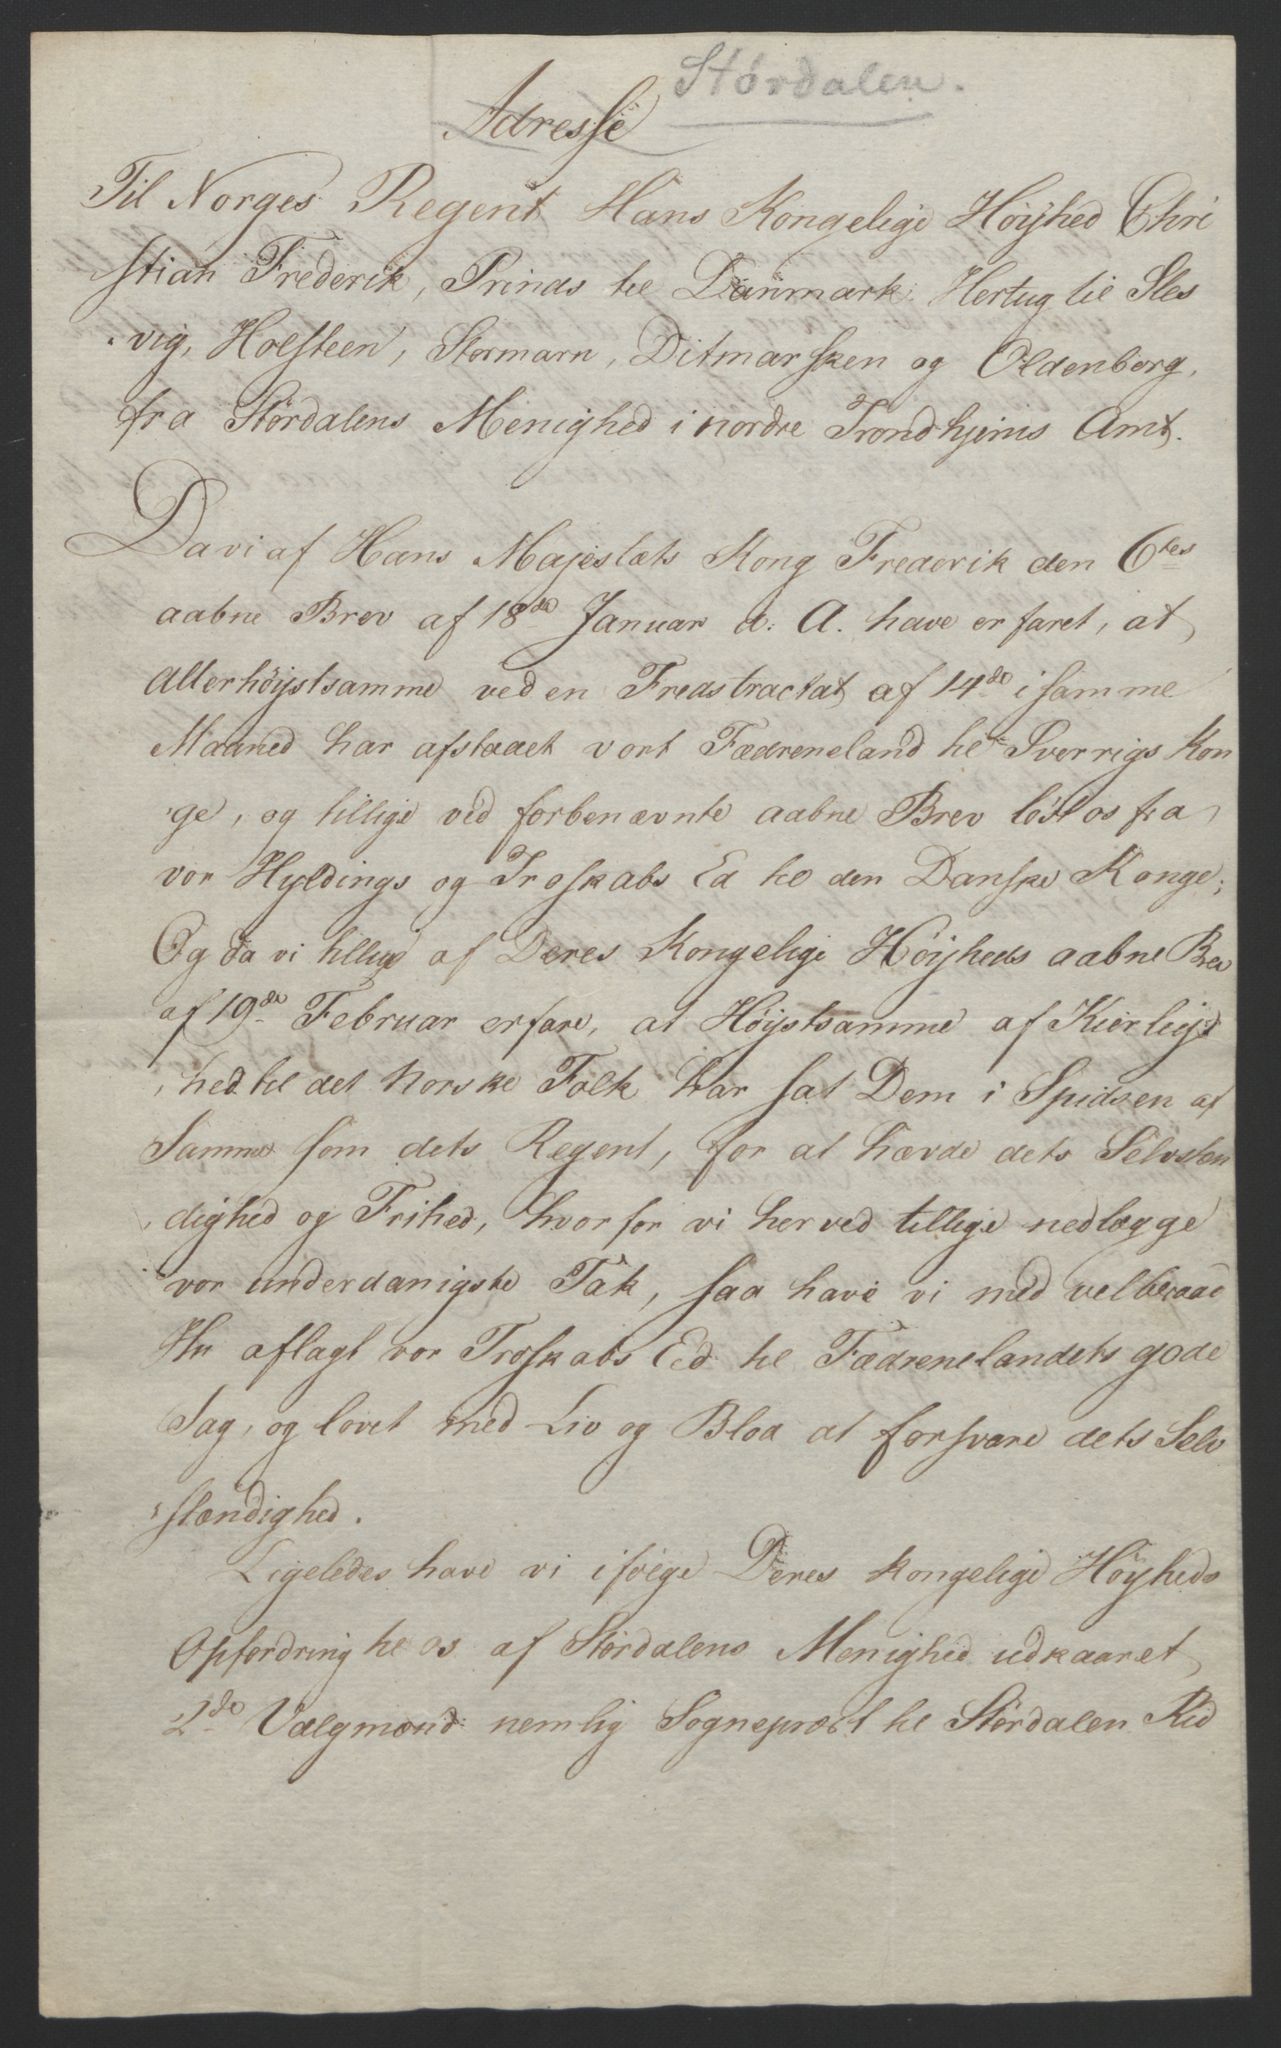 Stördalen.
Adresse
Til Norges Regent Hans Kongelige Höijhed Chri
stian Frederik, Prinds til Danmark Hertug til Sles
vig, Holsteen, Stormarn, Ditmarsken og Oldenborg,
fra Stördalens Menighed i nordre Trondhjems Amt.
Da vi af Hans Majestæts Kong Frederik den 6tes
aabne Brev af 18de Januar d: A. have erfaret, at
Allerhöijstsamme ved en Fredstractat af 14de i samme
Maaned har afstaaet vort Fædreneland til Sverrigs Kon
ge, og tillige ved forbenævnte aabne Brev löst os fra
vor Hyldings og Troskabs Ed til den Danske Konge;
Og da vi tillige af Deres Kongelige Höijheds aabne Brev
af 19de Februar erfare, at Höijstsamme af Kierlig
hed til det Norske Folk har sat Dem i Spidsen af
Samme som dets Regent, for at hævde dets Selvstæn
dighed og Frihed, hvorfor vi herved tillige nedlægge
vor underdanigste Tak, saa have vi med velberaad
Hu aflagt vor Troskabs Eed til Fædrenelandets gode
Sag, og lovet med Liv og Blod at forsvare dets Selv
stændighed.
Ligeledes have vi ifölge Deres kongelige Höijheds
Opfordring til os af Stördalens Menighed udkaaret
2de Valgmænd nemlig Sognepræst til Stördalen Rid